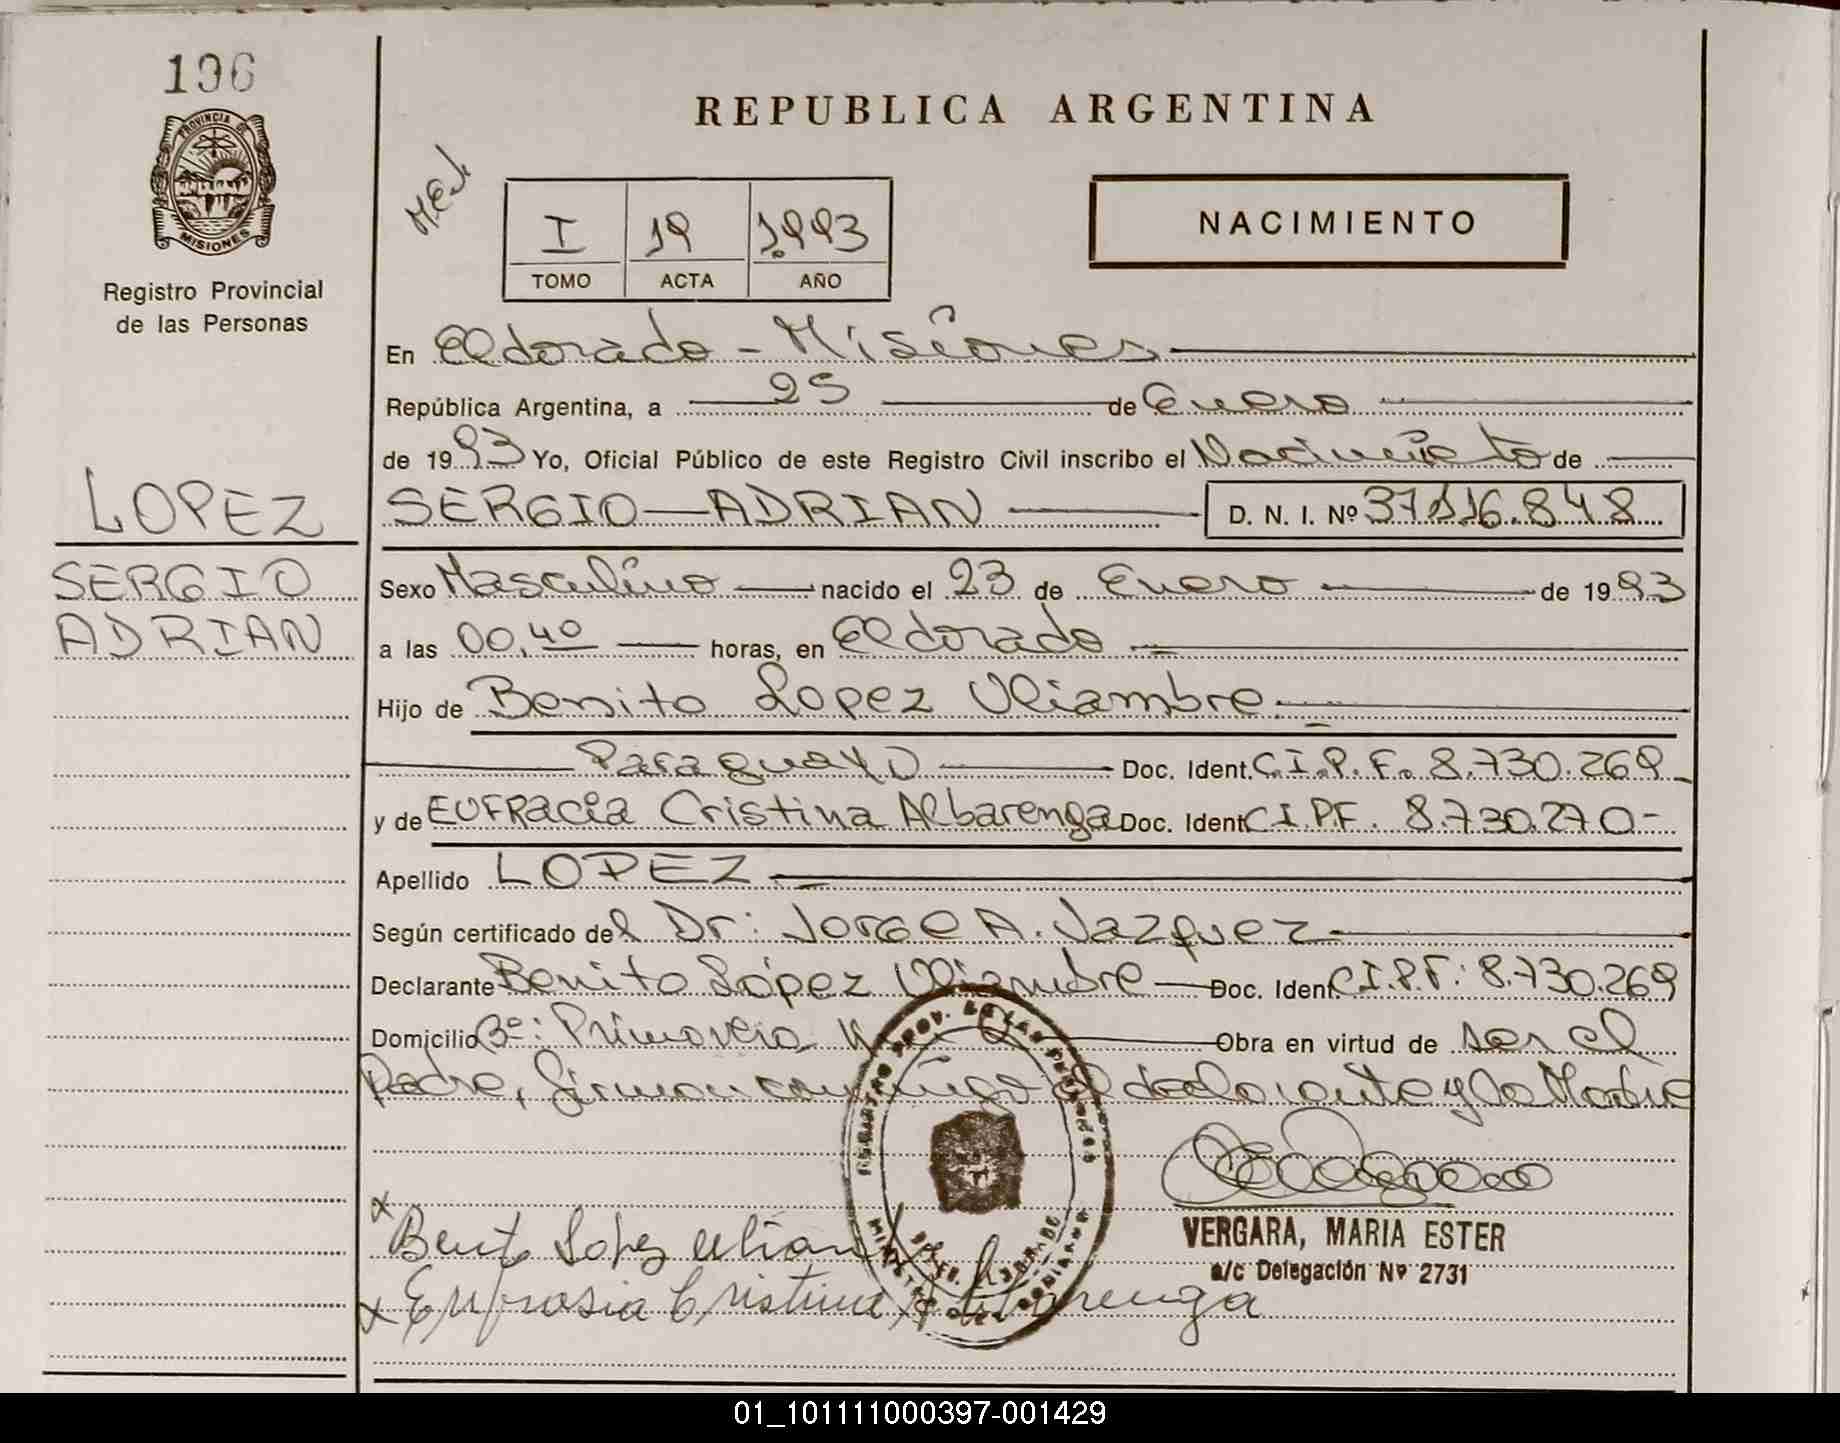 196
PROVINCIA DE
MISIONES
Registro Provincial
de las Personas
LOPEZ
SERGIO
ADRIAN
REPUBLICA ARGENTINA
I 19 1993
TOMO ACTA AÑO
NACIMIENTO
En Eldorado - Misiones
República Argentina, a 25 de Enero
de 1993 Yo, Oficial Público de este Registro Civil inscribo el Nacimiento de
SERGIO ADRIAN D. N. I. Nº 37.116.848
Sexo Masculino nacido el 23 de Enero de 1993
a las 00,40 horas, en Eldorado
Hijo de Benito Lopez Uliambre
Paraguayo Doc. Ident. C.I.P.F. 8.730.269
y de EUFRacia Cristina Albarenga Doc. Ident C.I.P.F. 8.730.270-
Apellido LOPEZ
Según certificado del Dr: Jorge A. Vazquez
Declarante Benito López Uliambre Doc. Ident C.I.P.F: 8.730.269
Domicilio Bº: Primavera Obra en virtud de ser el
Padre, firman conmigo el declarante y la Madre
VERGARA, MARIA ESTER
a/c Delegación Nº 2731
x Benito Lopez
x Eufrasia Cristina Albarenga
01_101111000397-001429